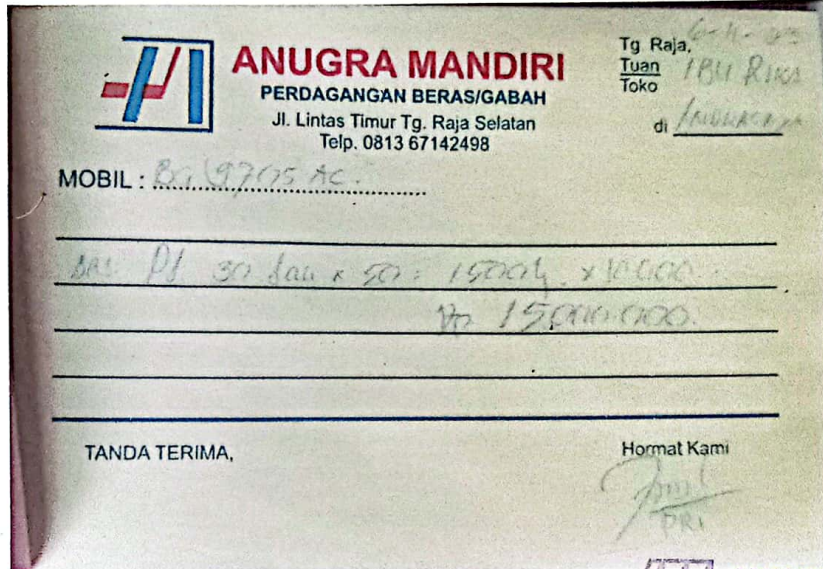 ANUGRA MANDIRI
PERDAGANGAN BERAS/GABAH
Jl. Lintas Timur Tg. Raja Selatan
Telp. 0813 67142498
Tg. Raja,
Tuan
Toko IBU RIKA
di
MOBIL : BG 9705 AC.
30 x 50 = 1500 x 10.000
Rp 15.000.000.
TANDA TERIMA,
Hormat Kami